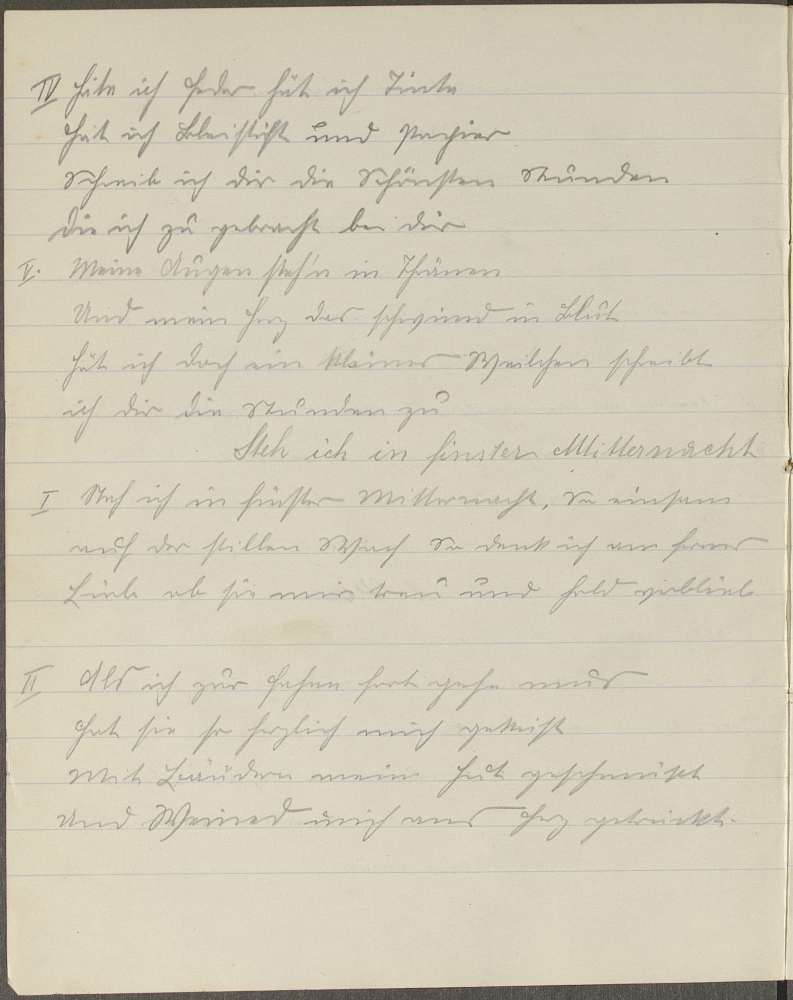 IV Häte ich Feder hät ich Tinte
Hät ich Bleistift und Pachier
Schreib ich dir die Schönsten Stunden
die ich zu gebracht bei dir
V. Meine Augen steh'n in Thränen
Und mein Herz das schwimd in Blut
Hät ich doch ein kleines Weilchen schreibt
ich dir die Stunden zu
Steh ich in finster Mitternacht
I Steh ich in finster Mitternacht, So einsam
auf der stillen Wach So denk ich am fernes
Lieb ob sie mir treu und hold verblieb
II Als ich zur Fahne fort gehn mus
Hat sie so herzlich mich geküst
Mit Bändern mein Hut geschmükt
Und Weined mich ans Herz getrückt.